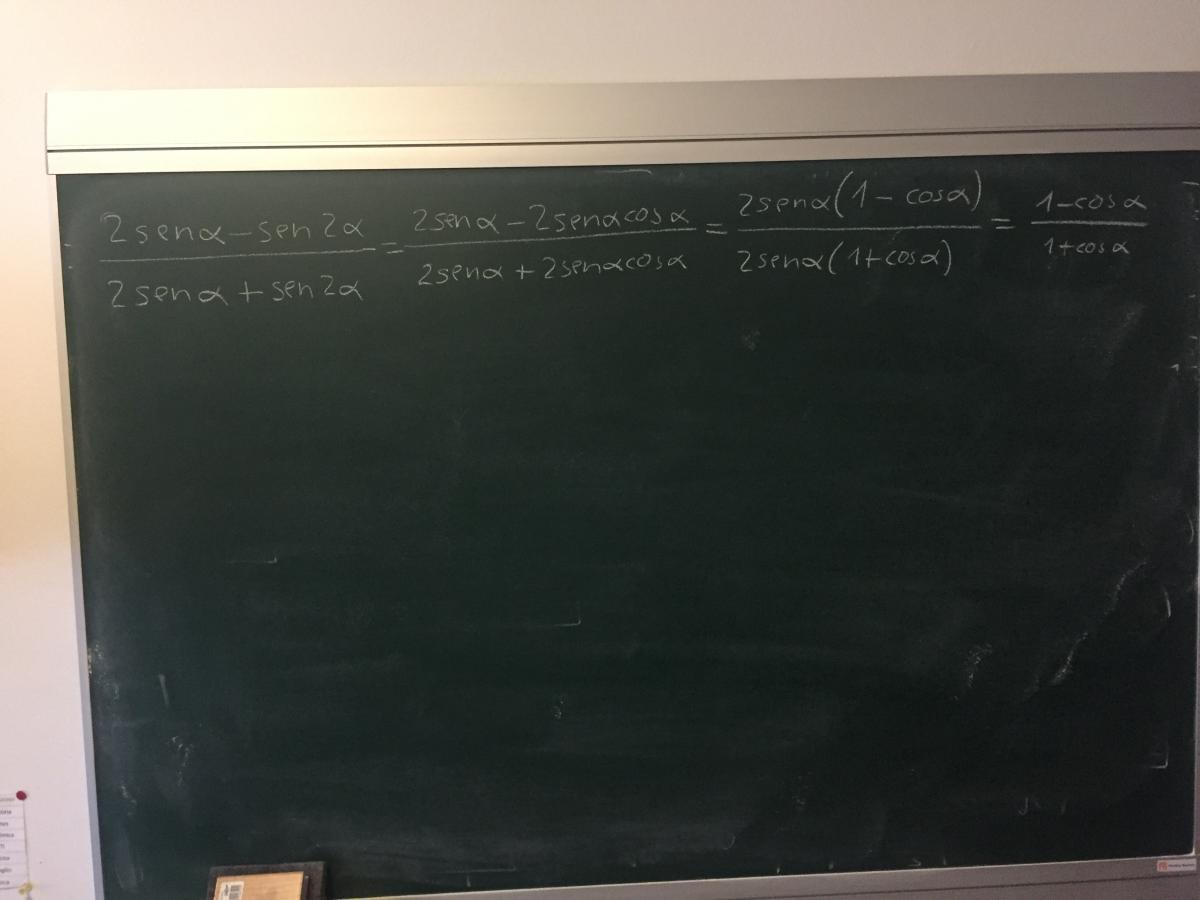 2senα-sen2α / 2senα+sen2α = 2senα-2senαcosα / 2senα+2senαcosα = 2senα(1-cosα) / 2senα(1+cosα) = 1-cosα / 1+cosα